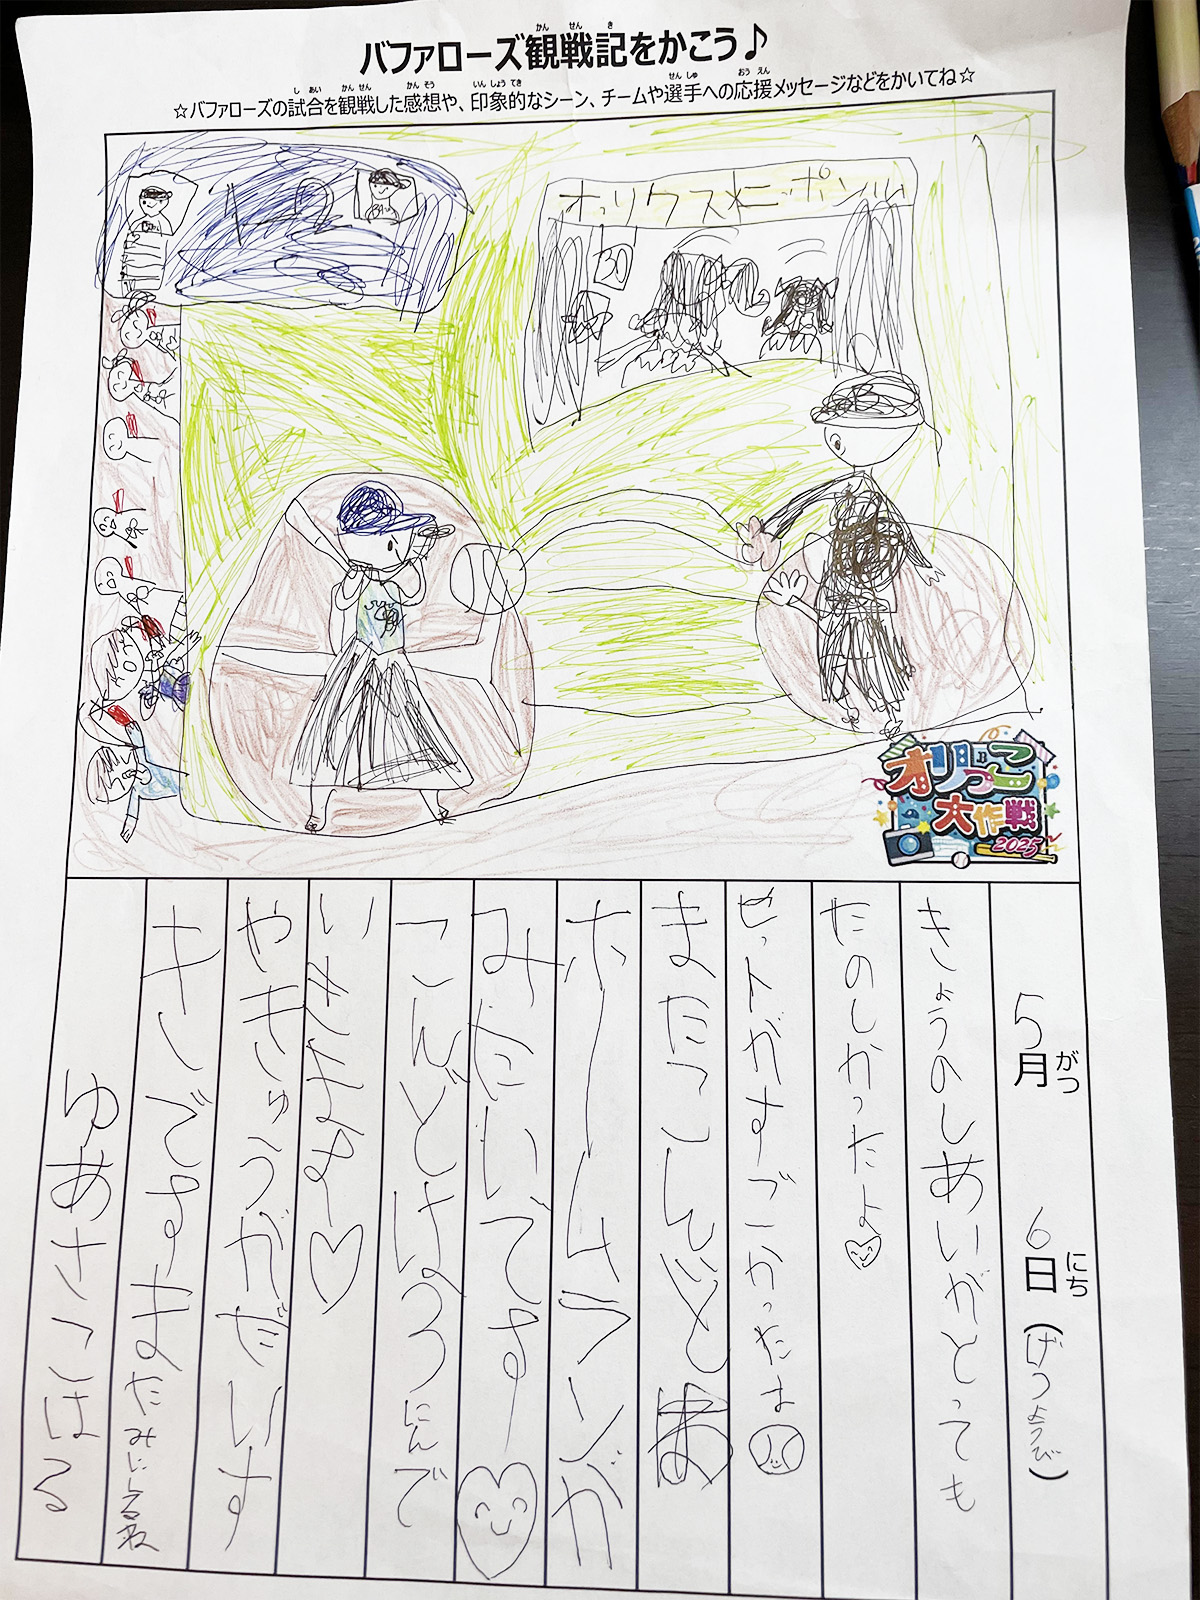 バファローズ観戦記をかこう♪
☆バファローズの試合を観戦した感想や、印象的なシーン、チームや選手への応援メッセージなどをかいてね☆
オリックスxニッポンハム
30
オリっこ
大作戦
2025
5月6日(げつようび)
きょうのしあいがとっても
たのしかったよ
ヒットがすごかったよ
またこんど
ホームランが
みたいです
こんどは3にんで
いきます
やきゅうがだいす
きです。またみにくるね
ゆあさこはる